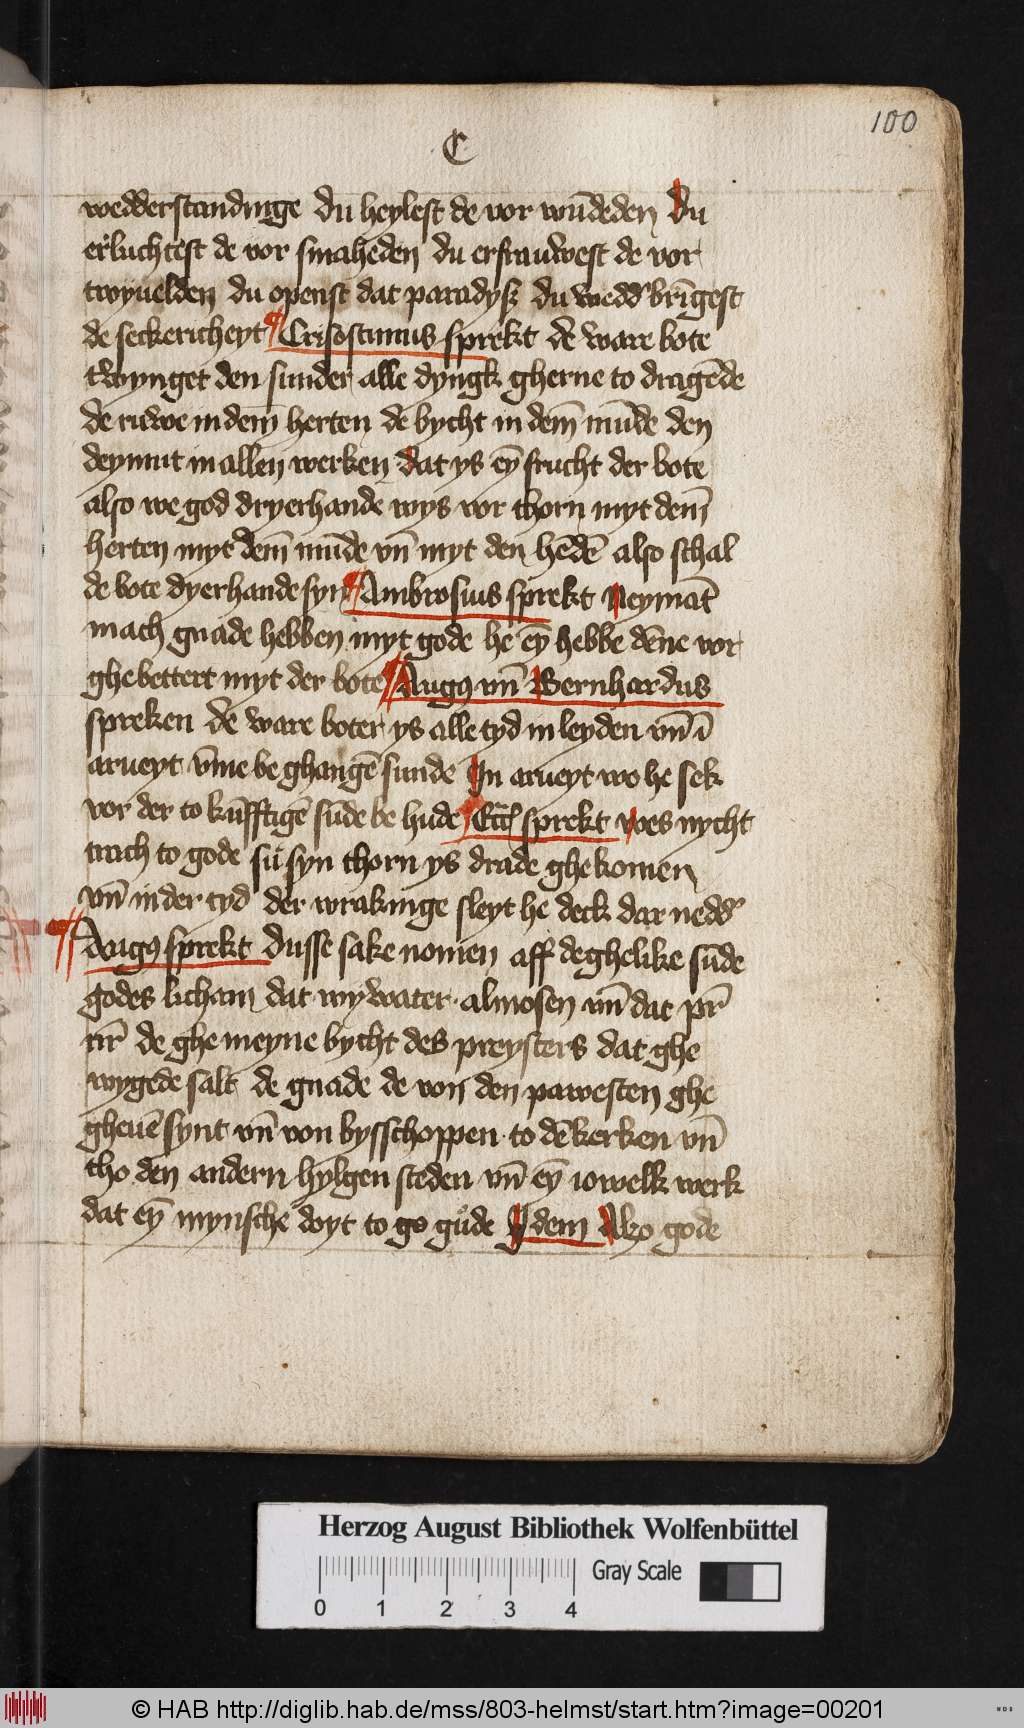 100
C
wedderstandinge du heylest de vor wūdeden Du
erluchtest de vor smaheden du erfrauwest de vor
twyuelden du openst dat paradyß du wedd' brīgest
de seckericheyt ¶ Crisostimus sprekt de ware bote
twynget den sunder alle dyngk gherne to dragēde
de ruwe in dem̄ herten de bycht in dem̄ mūde den
deymut in allen werken dat ys eȳ frucht der bote
also we god dryerhande wys vor thorn myt dem̄
herten myt dem̄ mūde vn̄ myt den hēdē also schal
de bote dyerhande syn ¶ Ambrosius sprekt Neymāt
mach gnade hebben myt gode he eȳ hebbe dēne vor
ghebettert myt der bote ¶ Augꝰ vn̄ Bernhardus
spreken de ware boter ys alle tyd in leyden vn̄ ī
arueyt vm̄e be ghangē sunde In arueyt wo he sek
vor der to kūfftigē sūde be hude Eccl̄ sprekt Wes nycht
trach to gode su syn thorn ys drade ghekomen
vn̄ in der tyd der wrakinge sleyt he deck dar nedd'
¶ Augꝰ sprekt Dusse sake nomen aff deghelike sūde
godes licham dat wywater almosen vn̄ dat pr̄
nr̄ de ghemeyne bycht des preysters dat ghe
wygede salt de gnade de von den pawesten ghe
gheuē synt vn̄ von bysschoppen to dē kerken vn̄
tho den andern hylgen steden vn̄ eȳ iowelk werk
dat eȳ mynsche doyt to go gude Idem Alzo gode
Herzog August Bibliothek Wolfenbüttel
Gray Scale
0 1 2 3 4
© HAB http://diglib.hab.de/mss/803-helmst/start.htm?image=00201